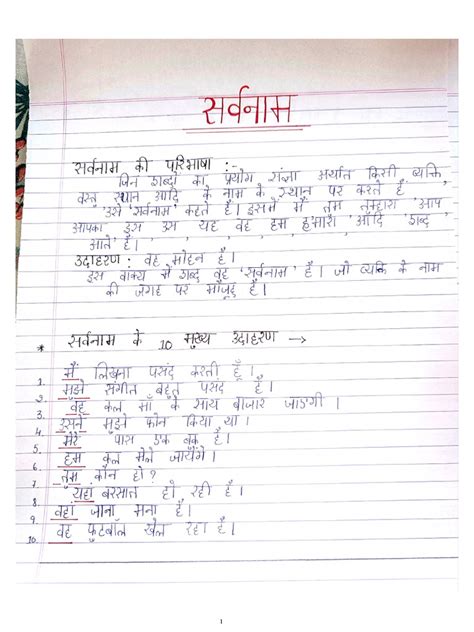 सर्वनाम
सर्वनाम की परिभाषा :-
जिन शब्दों का प्रयोग संज्ञा अर्थात किसी व्यक्ति,
वस्तु स्थान आदि के नाम के स्थान पर करते है
उसे 'सर्वनाम' कहते है। इसमें मैं तुम तुम्हारा 'आप
आपका इस उस यह वह हम हमारा आदि शब्द
आते है।
उदाहरण : वह मोहन है।
इस वाक्य में शब्द वह 'सर्वनाम' है। जो व्यक्ति के नाम
की जगह पर मौजूद है।
* सर्वनाम के 10 मुख्य उदाहरण →
1. मैं लिखना पसंद करती हूँ।
2. मुझे संगीत बहुत पसंद है।
3. वह कल माँ के साथ बाजार जाऐगी।
4. उसने मुझे फोन किया था।
5. मेरे पास इक बुक है।
6. हम कल मेले जायेंगे।
7. तुम कौन हो?
8. यहां बरसात हो रही है।
9. वहां जाना मना है।
10. वह फुटबॉल खेल रहा है।
1